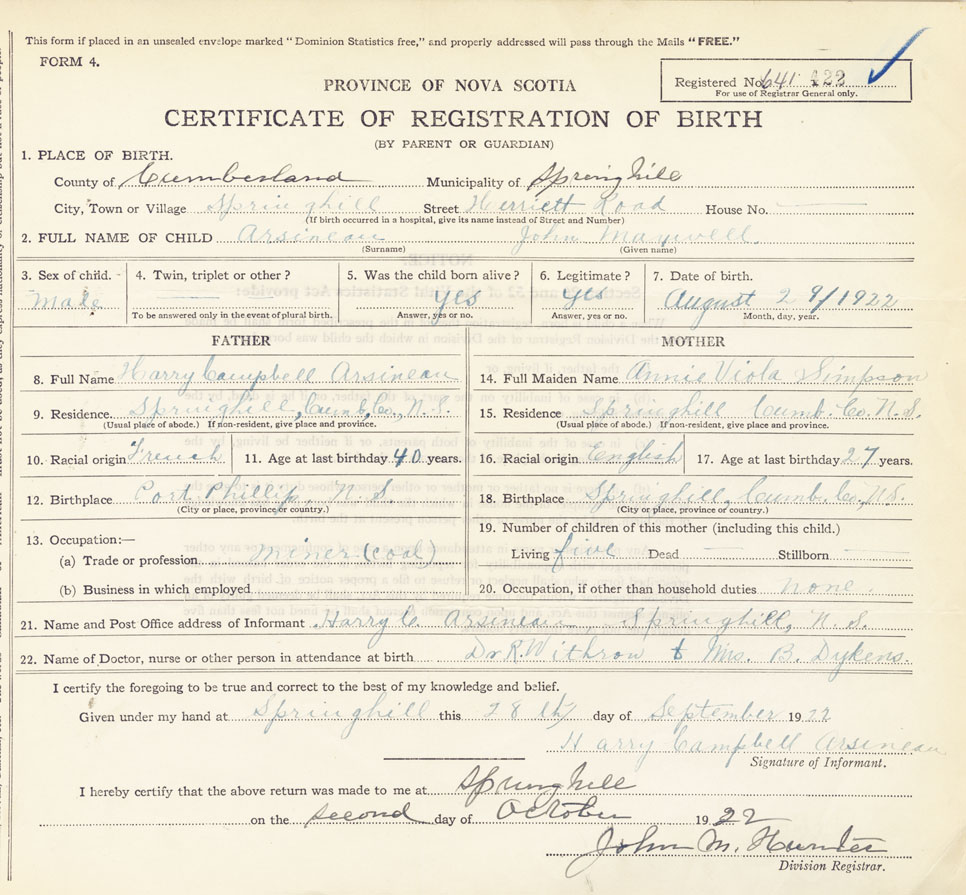 This form if placed in an unsealed envelope marked "Dominion Statistics free," and properly addressed will pass through the Mails "FREE."
FORM 4.
Registered No. 641 422
For use of Registrar General only.
PROVINCE OF NOVA SCOTIA
CERTIFICATE OF REGISTRATION OF BIRTH
(BY PARENT OR GUARDIAN)
1. PLACE OF BIRTH.
County of Cumberland Municipality of Springhill
City, Town or Village Springhill Street Herriett Road House No.
(If birth occurred in a hospital, give its name instead of Street and Number)
2. FULL NAME OF CHILD Arsineau John Maxwell
(Surname) (Given name)
3. Sex of child. 4. Twin, triplet or other? 5. Was the child born alive? 6. Legitimate? 7. Date of birth.
Male Yes Yes August 29/1922
To be answered only in the event of plural birth. Answer, yes or no. Answer, yes or no. Month, day, year.
FATHER MOTHER
8. Full Name Harry Campbell Arsineau 14. Full Maiden Name Annie Viola Simpson
9. Residence. Springhill, Cumb. Co., N.S. 15. Residence Springhill Cumb. Co. N.S.
(Usual place of abode.) If non-resident, give place and province. (Usual place of abode.) If non-resident, give place and province.
10. Racial origin French 11. Age at last birthday 40 years. 16. Racial origin English 17. Age at last birthday 27 years.
12. Birthplace Port Phillip, N.S 18. Birthplace Springhill, Cumb. Co., N.S.
(City or place, province or country.) (City or place, province or country.)
19. Number of children of this mother (including this child.)
13. Occupation:—
Living five Dead Stillborn
(a) Trade or profession miner (coal)
(b) Business in which employed 20. Occupation, if other than household duties none.
21. Name and Post Office address of Informant Harry C Arsineau, Springhill, N.S.
22. Name of Doctor, nurse or other person in attendance at birth Dr R. Withrow & Mrs. B. Dykens.
I certify the foregoing to be true and correct to the best of my knowledge and belief.
Given under my hand at Springhill this 28th day of September 1922
Harry Campbell Arsineau
Signature of Informant.
I hereby certify that the above return was made to me at Springhill
on the second day of October 1922
John M. Hunter
Division Registrar.